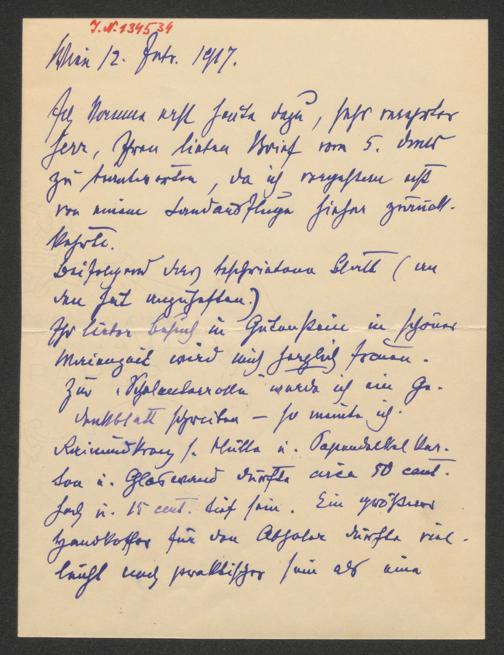 J.N. 134534
Wien 12. Febr. 1917.
Ich komme erst heute dazu, sehr verehrter
Herr, Ihren lieben Brief vom 5. dmts
zu beantworten, da ich vorgestern erst
von einem Landausfluge hieher zurück-
kehrte.
Beifolgend das beschriebene Blatt (an
den Hut anzuheften.)
Ihr lieber Besuch in Gutenstein in schöner
Maienzeit wird mich herzlich freuen.
Zur "Schalanterrolle" werde ich ein Ge-
denkblatt schreiben – so meinte ich.
Raimundkranz s. Hülle u. Papendeckel Kar-
ton u. Glaswand dürfte circa 50 cent.
hoch u. 15 cent. tief sein. Ein größerer
Handkoffer für den Abholer dürfte viel-
leicht noch praktischer sein als eine